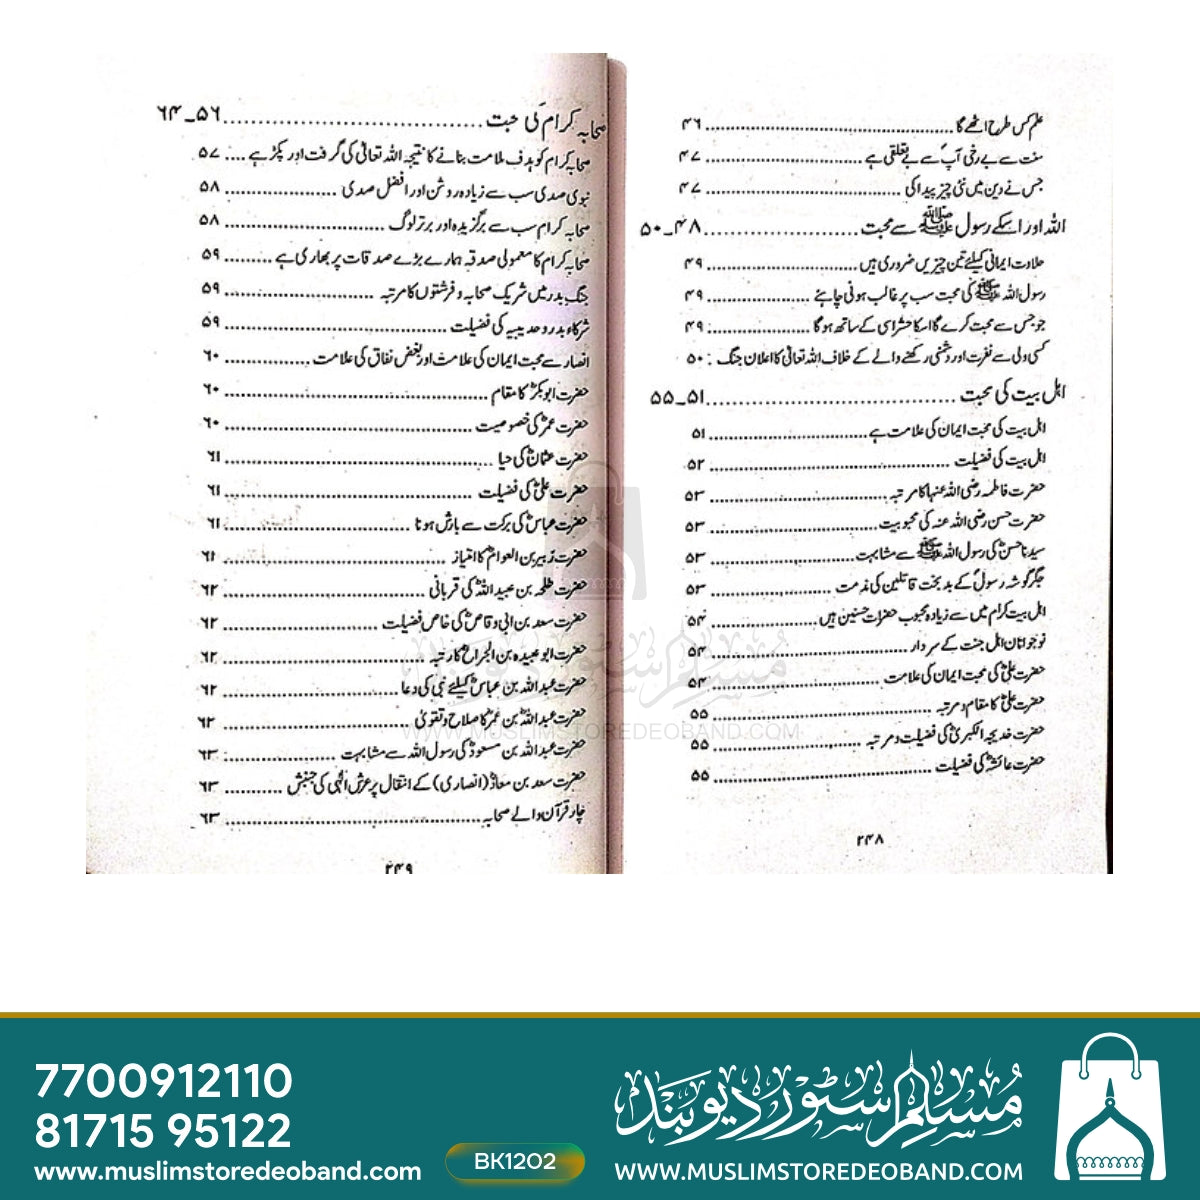 علم کس طرح اٹھے گا ........ ۴۶
سنت سے بے رخی آپ سے بے تعلقی ہے ........ ۴۷
جس نے دین میں نئی چیز پیدا کی ........ ۴۷
اللہ اور اسکے رسول ﷺ سے محبت ........ ۴۸ـ۵۰
حلاوت ایمانی کیلئے تین چیزیں ضروری ہیں ........ ۴۹
رسول اللہ ﷺ کی محبت سب پر غالب ہونی چاہئے ........ ۴۹
جو جس سے محبت کرے گا اسکا حشر اسی کے ساتھ ہوگا ........ ۴۹
کسی ولی سے نفرت اور دشمنی رکھنے والے کے خلاف اللہ تعالیٰ کا اعلان جنگ : ۵۰
اہل بیت کی محبت ........ ۵۱ـ۵۵
اہل بیت کی محبت ایمان کی علامت ہے ........ ۵۱
اہل بیت کی فضیلت ........ ۵۲
حضرت فاطمہ رضی اللہ عنہا کا مرتبہ ........ ۵۳
حضرت حسن رضی اللہ عنہ کی محبوبیت ........ ۵۳
سیدنا حسنؓ کی رسول اللہ ﷺ سے مشابہت ........ ۵۳
جگر گوشہ رسولؐ کے بدبخت قاتلین کی مذمت ........ ۵۳
اہل بیت کرام میں سے زیادہ محبوب حضرات حسنین ہیں ........ ۵۴
نوجوانان اہل جنت کے سردار ........ ۵۴
حضرت علیؓ کی محبت ایمان کی علامت ........ ۵۴
حضرت علیؓ کا مقام و مرتبہ ........ ۵۵
حضرت خدیجۃ الکبریٰؓ کی فضیلت و مرتبہ ........ ۵۵
حضرت عائشہؓ کی فضیلت ........ ۵۵
۲۴۸
صحابہ کرام کی محبت ........ ۵۶ـ۶۴
صحابہ کرام کو ہدف ملامت بنانے کا نتیجہ اللہ تعالیٰ کی گرفت اور پکڑ ہے .... ۵۷
نبوی صدی سب سے زیادہ روشن اور افضل صدی ........ ۵۸
صحابہ کرام سب سے برگزیدہ اور برتر لوگ ........ ۵۸
صحابہ کرام کا معمولی صدقہ ہمارے بڑے صدقات پر بھاری ہے ........ ۵۹
جنگ بدر میں شریک صحابہ و فرشتوں کا مرتبہ ........ ۵۹
شرکاء بدر و حدیبیہ کی فضیلت ........ ۵۹
انصار سے محبت ایمان کی علامت اور بغض نفاق کی علامت ........ ۶۰
حضرت ابوبکرؓ کا مقام ........ ۶۰
حضرت عمرؓ کی خصوصیت ........ ۶۰
حضرت عثمانؓ کی حیا ........ ۶۱
حضرت علیؓ کی فضیلت ........ ۶۱
حضرت عباسؓ کی برکت سے بارش ہونا ........ ۶۱
حضرت زبیر بن العوامؓ کا امتیاز ........ ۶۱
حضرت طلحہ بن عبیداللہؓ کی قربانی ........ ۶۲
حضرت سعد بن ابی وقاصؓ کی خاص فضیلت ........ ۶۲
حضرت ابو عبیدہ بن الجراحؓ کا رتبہ ........ ۶۲
حضرت عبداللہ بن عباسؓ کیلئے نبی کی دعا ........ ۶۲
حضرت عبداللہ بن عمرؓ کا صلاح و تقویٰ ........ ۶۲
حضرت عبداللہ بن مسعودؓ کی رسول اللہ سے مشابہت ........ ۶۳
حضرت سعد بن معاذؓ (انصاری) کے انتقال پر عرش الٰہی کی جنبش ........ ۶۳
چار قرآن والے صحابہ ........ ۶۳
۲۴۹
مسلم سٹور دیوبند
WWW.MUSLIMSTOREDEOBAND.COM
7700912110
81715 95122
www.muslimstoredeoband.com
BK1202
مسلم سٹور دیوبند
WWW.MUSLIMSTOREDEOBAND.COM